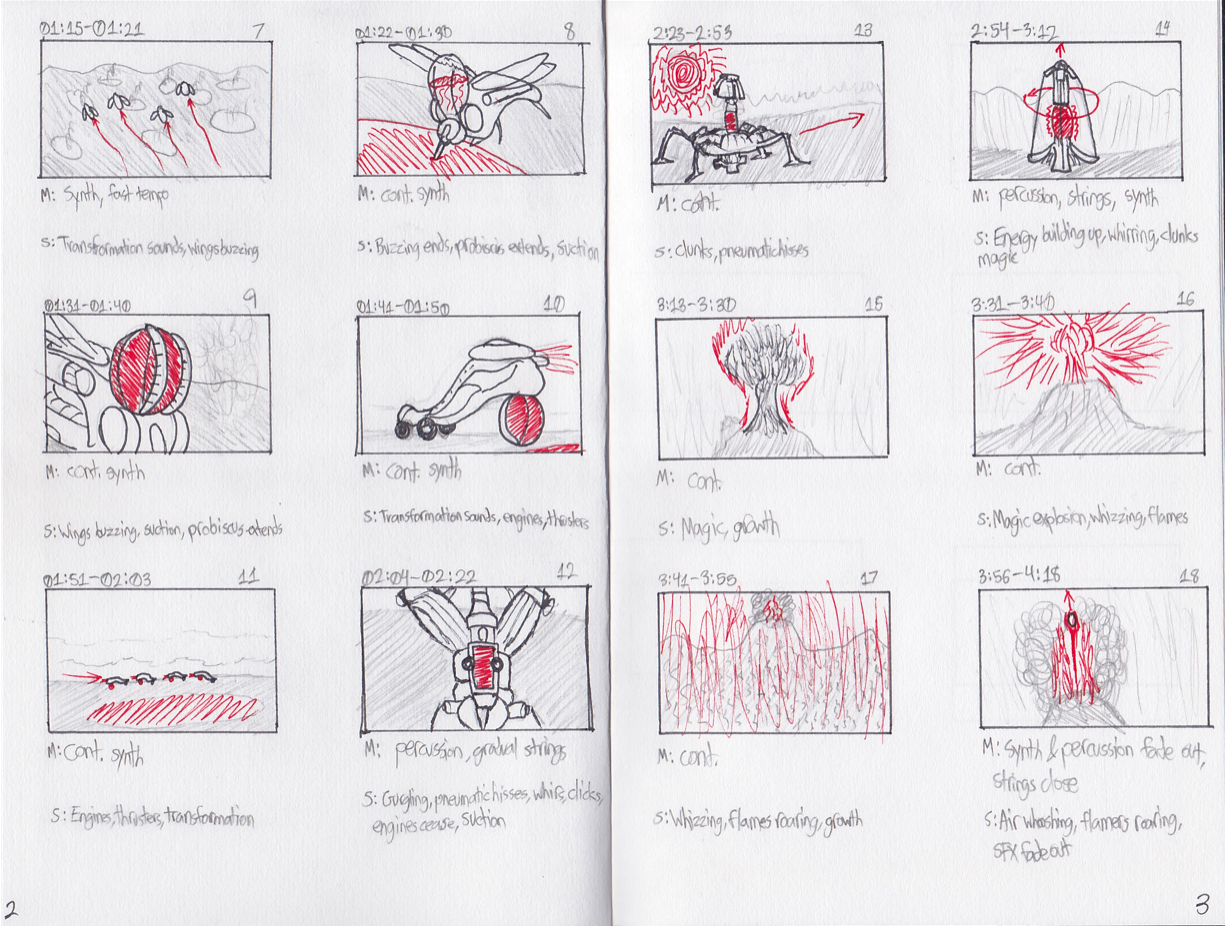 01:15-01:21 7
M: Synth, fast tempo
S: Transformation sounds, wings buzzing
01:22-01:30 8
M: cont. synth
S: Buzzing ends, probiscus extends, suction
01:31-01:40 9
M: cont. synth
S: Wings buzzing, suction, probiscus extends
01:41-01:50 10
M: cont. synth
S: Transformation sounds, engines, thrusters
01:51-02:03 11
M: cont. synth
S: Engines, thrusters, transformation
02:04-02:22 12
M: percussion, gradual strings
S: Gurgling, pneumatic hisses, whirs, clicks,
engines cease, suction
2
2:23-2:53 13
M: cont.
S: clunks, pneumatic hisses
2:54-3:12 14
M: percussion, strings, synth
S: Energy building up, whirring, clunks
magic
3:13-3:30 15
M: cont.
S: Magic, growth
3:31-3:40 16
M: cont.
S: Magic explosion, whizzing, flames
3:41-3:55 17
M: cont.
S: Whizzing, flames roaring, growth
3:56-4:18 18
M: Synth & percussion fade out,
strings close
S: Air whooshing, flamers roaring,
SFX fade out
3